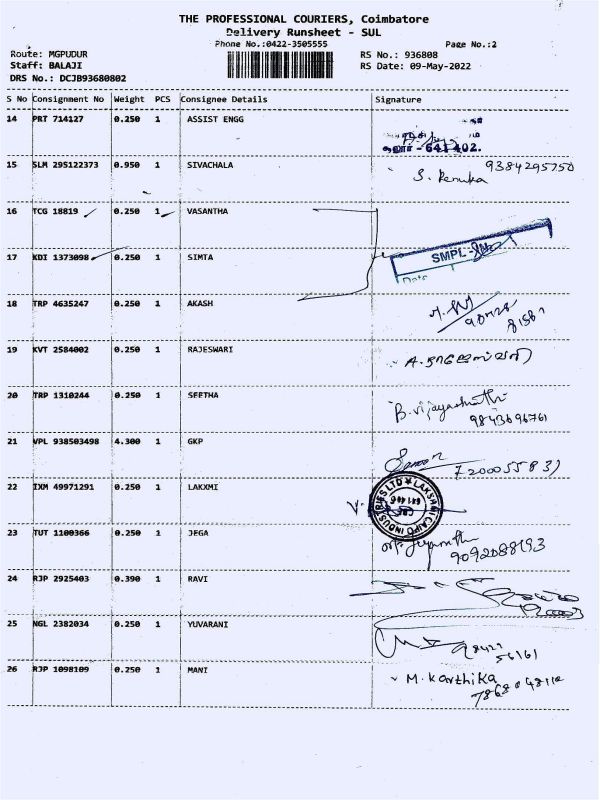 THE PROFESSIONAL COURIERS, Coimbatore
Delivery Runsheet - SUL
Phone No.:0422-3505555 Page No.:2
Route: MGPUDUR RS No.: 936808
Staff: BALAJI RS Date: 09-May-2022
DRS No.: DCJB93680802
S No Consignment No Weight PCS Consignee Details Signature
14 PRT 714127 0.250 1 ASSIST ENGG
- 641 402.
15 SLM 295122373 0.950 1 SIVACHALA 9384295750
S. Renuka
16 TCG 18819 0.250 1 VASANTHA
17 KDI 1373098 0.250 1 SIMTA SMPL
Date
18 TRP 4635247 0.250 1 AKASH
19 KVT 2584002 0.250 1 RAJESWARI
20 TRP 1310244 0.250 1 SEETHA
9843696761
21 VPL 938503498 4.300 1 GKP
22 IXM 49971291 0.250 1 LAKXMI
LAKSHMI CAIPO INDUSTRIES LTD
23 TUT 1100366 0.250 1 JEGA
9092088193
24 RJP 2925403 0.390 1 RAVI
25 NGL 2382034 0.250 1 YUVARANI
26 RJP 1098109 0.250 1 MANI M. Karthika